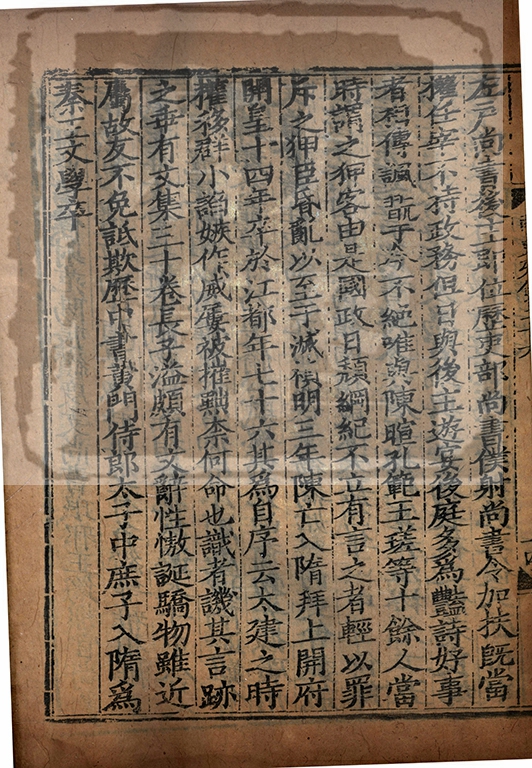 左戶尚書後主即位歷吏部尚書僕射尚書令加扶既當
權任宰不持政務但日與後主遊宴後庭多為豔詩好事
者相傳諷翫于今不絕唯與陳暄孔範王瑳等十餘人當
時謂之狎客由是國政日頹綱紀不立有言之者輕以罪
斥之狎臣昏亂以至于滅禎明三年陳亡入隋拜上開府
開皇十四年卒於江都年七十六其為自序云太建之時
權移群小諂嫉作威屢被摧黜柰何命也識者譏其言跡
之乖有文集三十卷長子溢頗有文辭性慠誕驕物雖近
屬故友不免詆欺歷中書黃門侍郎太子中庶子入隋為
秦王文學卒